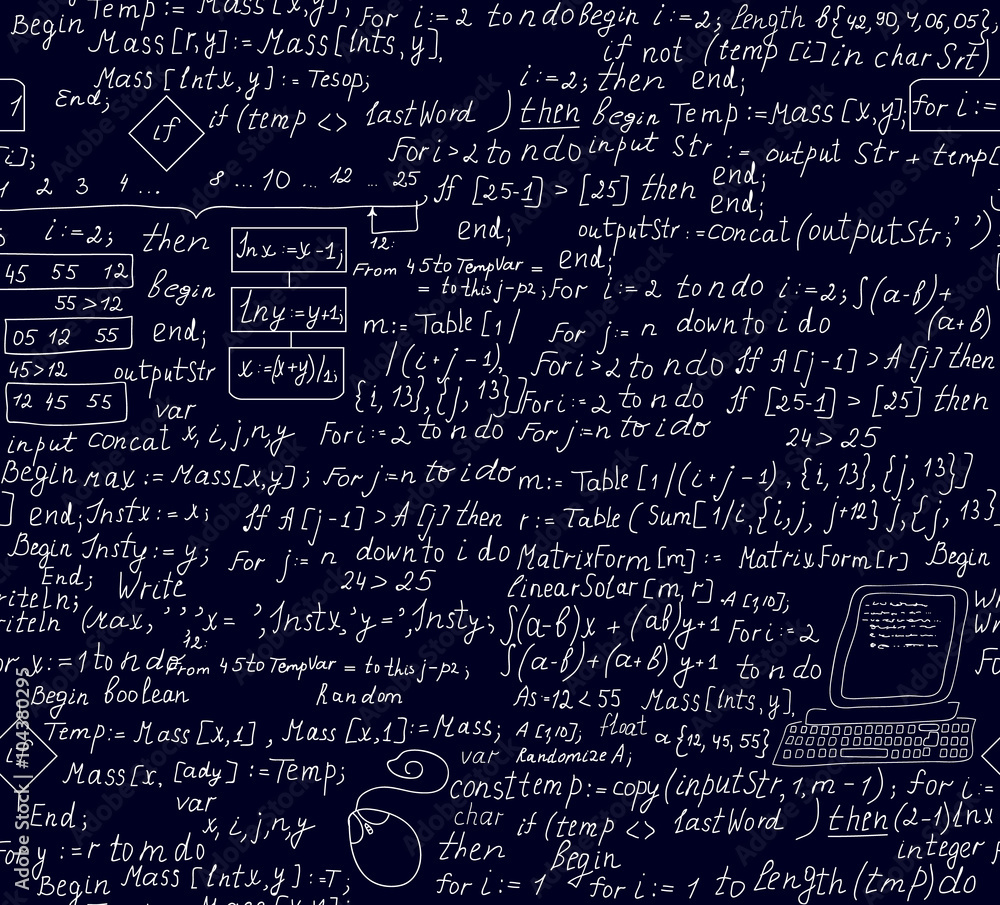 Begin Temp := Mass [x,y]; For i:=2 to n do Begin i:=2; length b{42,90,4,06,05};
Mass[r,y]:=Mass[Ints,y],
if not (temp [i] in char Srt)
Mass [Intx,y] := Tesop;
i:=2; then end;
1 End;
if
if (temp <> lastWord ) then Begin Temp :=Mass [x,y]; for i :=
[i];
For i>2 to n do input Str := output Str + temp[
1 2 3 4 ... 8 ... 10 ... 12 ... 25
If [25-1] > [25] then end;
end;
i:=2; then
Inx :=x-1;
12:
end; outputStr :=concat (outputStr; ' ')
45 55 12
From 45 to TempVar = end;
= to this j-p2;
55 >12
Begin
Iny :=y+1;
For i:=2 to n do i:=2; ∫(a-b)+
(a+b)
05 12 55
end;
m:= Table [1/
For j:= n down to i do
45>12
outputStr
x:=(x+y)/1;
/(i+j-1),
For i>2 to n do If A [j-1] > A [j] then
12 45 55
var
{i, 13},{j, 13}]
For i:=2 to n do If [25-1] > [25] then
input concat x, i, j, n, y For i:=2 to n do For j=n to i do
24 > 25
Begin max := Mass[x,y]; For j=n to i do m:= Table [1/(i+j-1), {i, 13},{j, 13}]
] end; Instx := x; If A [j-1] > A [j] then r:= Table (Sum[1/i,{i,j, j+12} j,{j, 13}
Begin Insty := y; For j:= n down to i do MatrixForm[m] := MatrixForm[r] Begin
End; Write
24 > 25
linearSolar [m, r] A [1,10];
riteln;
riteln (max, ' ', 'x= ', Instx, 'y=', Insty; ∫(a-b)x + (ab)y+1 For i:=2
12:
or x:=1 to n do From 45 to TempVar = to this j-p2; ∫(a-b)+(a+b) y+1 to n do
Begin boolean Random As=12 < 55 Mass[Ints, y],
if
Temp:= Mass [x,1] , Mass [x,1]:=Mass; A [1,10]; float a {12, 45, 55}
var RandomizeA;
Mass[x, [ady] :=Temp;
const temp:= copy (inputStr, 1, m-1); for i:=
var
End;
x, i, j, n, y
char if (temp <> lastWord ) then (2-1) Inx
For y :=r to m do
then Begin
integer
Begin Mass [Intx,y] :=T;
for i := 1 for i := 1 to length (tmp) do
Adobe Stock | #104380295